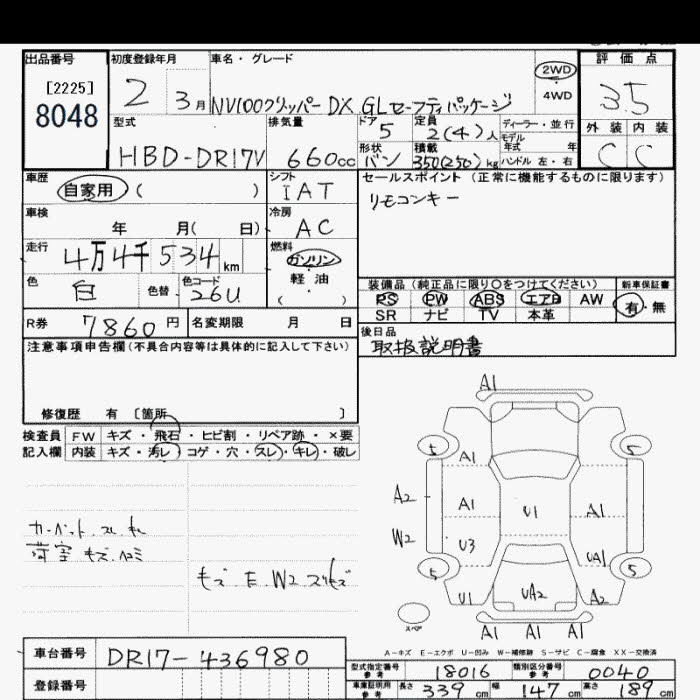 出品番号
[2225]
8048
初度登録年月
2 3月
車名・グレード
NV100クリッパー DX GLセーフティパッケージ
2WD
4WD
評価点
3.5
型式
HBD-DR17V
排気量
660cc
ドア 5
定員 2(4)人
ディーラー・並行
モデル年式 年
形状 バン
積載 350(250)kg
ハンドル 左・右
外装 内装
C C
車歴
自家用 ( )
シフト
IAT
セールスポイント(正常に機能するものに限ります)
リモコンキー
車検
年 月( 日)
冷房
AC
走行
4万4千534km
燃料
ガソリン
軽油
( )
色
白
色替
色コード
26U
装備品(純正品に限り○をつけてください)
新車保証書
PS PW ABS エアB AW
SR ナビ TV 本革
有・無
R券 7860円
名変期限 月 日
後日品
取扱説明書
注意事項申告欄(不具合内容等は具体的に記入して下さい)
修復歴 有 〔箇所 〕
検査員記入欄
FW キズ・飛石・ヒビ割・リペア跡・×要
内装 キズ・汚レ・コゲ・穴・スレ・キレ・破レ
カーペット スレ キレ
荷室 キズ.ヘコミ
キズ.E.W2 スリキズ
A1
5 5
A1
A2 A1 U1 A1
W2 U3 UA1
5 5
U1 UA2 A2
スペア
A1 A1 A1
A-キズ E-エクボ U-凹み W-補修跡 S-サビ C-腐食 XX-交換済
車台番号 DR17-436980
登録番号
型式指定番号 参考 18016
類別区分番号 参考 0040
車庫証明用 参考 長さ 339cm 幅 147cm 高さ 189cm